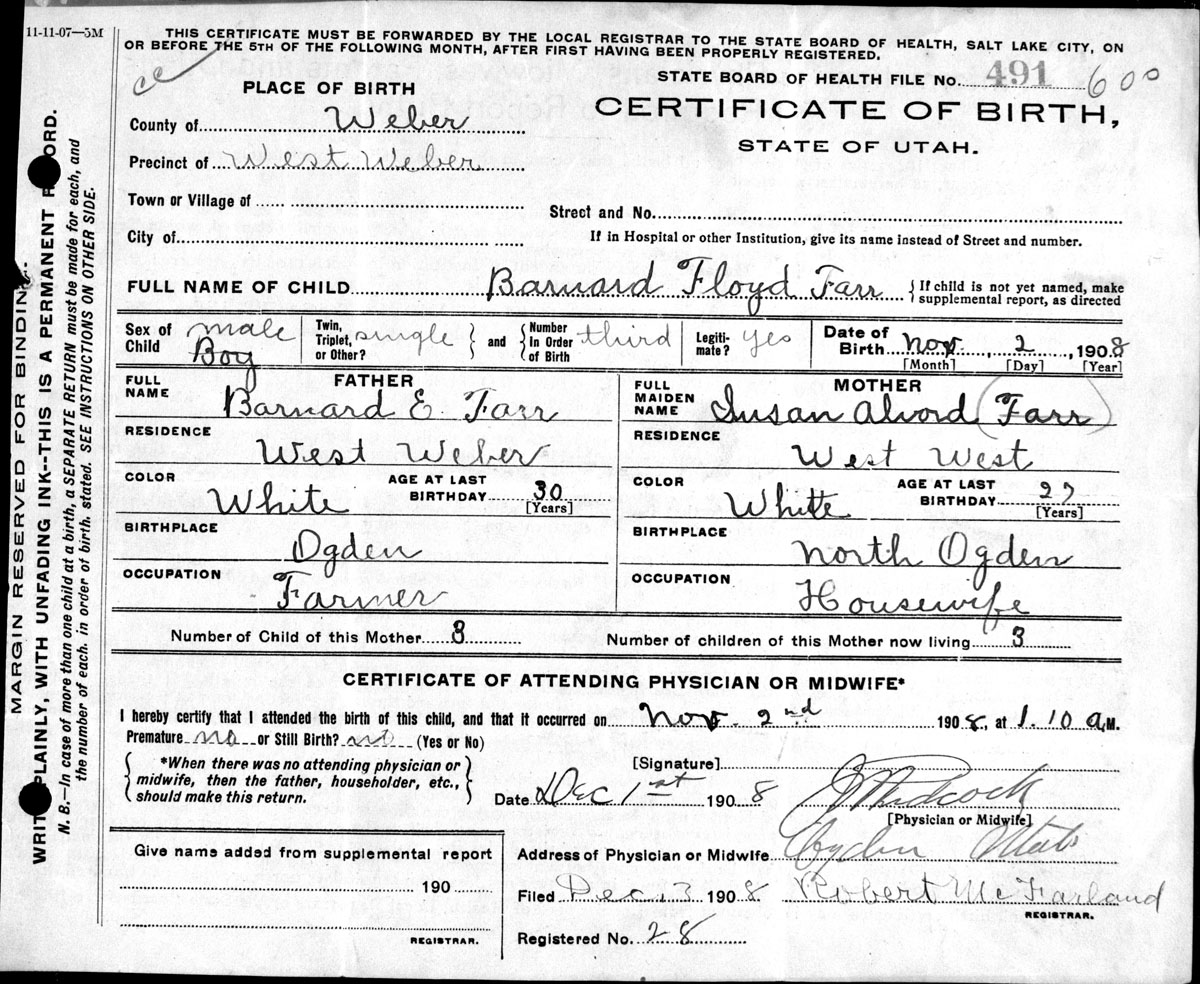 11-11-07—5M
THIS CERTIFICATE MUST BE FORWARDED BY THE LOCAL REGISTRAR TO THE STATE BOARD OF HEALTH, SALT LAKE CITY, ON
OR BEFORE THE 5TH OF THE FOLLOWING MONTH, AFTER FIRST HAVING BEEN PROPERLY REGISTERED.
STATE BOARD OF HEALTH FILE No. 491 600
CERTIFICATE OF BIRTH,
STATE OF UTAH.
PLACE OF BIRTH
County of Weber
Precinct of West Weber
Town or Village of
Street and No.
City of
If in Hospital or other Institution, give its name instead of Street and number.
FULL NAME OF CHILD Barnard Floyd Farr { If child is not yet named, make
supplemental report, as directed
Sex of Child male Boy
Twin, Triplet, or Other? single } and { Number in Order of Birth third
Legiti-mate? yes
Date of Birth Nov. 2, 1908
[Month] [Day] [Year]
FATHER
FULL NAME Barnard E. Farr
RESIDENCE West Weber
COLOR White AGE AT LAST BIRTHDAY 30 [Years]
BIRTHPLACE Ogden
OCCUPATION Farmer
MOTHER
FULL MAIDEN NAME Susan Alvord (Farr)
RESIDENCE West West
COLOR White AGE AT LAST BIRTHDAY 27 [Years]
BIRTHPLACE North Ogden
OCCUPATION Housewife
Number of Child of this Mother 3 Number of children of this Mother now living 3
CERTIFICATE OF ATTENDING PHYSICIAN OR MIDWIFE*
I hereby certify that I attended the birth of this child, and that it occurred on Nov. 2nd 1908, at 1.10 A.M.
Premature no or Still Birth? no (Yes or No)
{ *When there was no attending physician or
midwife, then the father, householder, etc.,
should make this return. }
[Signature]
Date Dec 1st 1908
[Physician or Midwife]
Address of Physician or Midwife Ogden Utah
Filed Dec. 3 1908 Robert McFarland
REGISTRAR.
Registered No. 28
Give name added from supplemental report
190
REGISTRAR.
MARGIN RESERVED FOR BINDING.
PLAINLY, WITH UNFADING INK--THIS IS A PERMANENT
N. B.—In case of more than one child at a birth, a SEPARATE RETURN must be made for each, and
the number of each, in order of birth, stated. SEE INSTRUCTIONS ON OTHER SIDE.